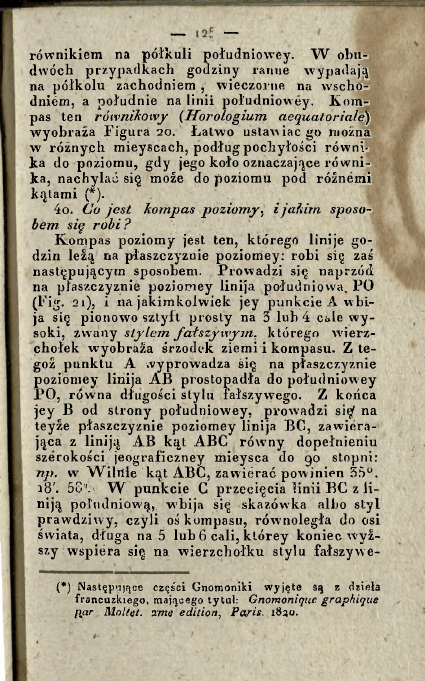 — 125 —
równikiem na półkuli południowey. W obu-
dwóch przypadkach godziny ranne wypadają
na półkolu zachodniem, wieczorne na wscho-
dniem, a południe na linii południowéy. Kom-
pas ten równikowy (Horologium aequatoriale)
wyobraża Figura 20. Łatwo ustawiac go można
w różnych mieyscach, podług pochyłości równi-
ka do poziomu, gdy jego koło oznaczające równi-
ka, nachylać się może do poziomu pod różnémi
kątami (*).
40. Co jest kompas poziomy, i jakim sposo-
bem się robi?
Kompas poziomy jest ten, którego linije go-
dzin leżą na płaszczyznie poziomey: robi się zaś
następującym sposobem. Prowadzi się naprzód
na płaszczyznie poziomey linija południowa PO
(Fig. 21), i na jakimkolwiek jey punkcie A wbi-
ja się pionowo sztyft prosty na 3 lub 4 cale wy-
soki, zwany stylem fałszywym, którego wierz-
chołek wyobraża śrzodek ziemi i kompasu. Z te-
goż punktu A wyprowadza się na płaszczyznie
poziomey linija AB prostopadła do południowey
PO, równa długości stylu fałszywego. Z końca
jey B od strony południowey, prowadzi się na
teyże płaszczyznie poziomey linija BC, zawiera-
jąca z liniją AB kąt ABC równy dopełnieniu
szerokości jeograficzney mieysca do 90 stopni:
np. w Wilnie kąt ABC, zawiérać powinien 35°.
18'. 58". W punkcie C przecięcia linii BC z li-
niją południową, wbija się skazówka albo styl
prawdziwy, czyli oś kompasu, równoległa do osi
świata, długa na 5 lub 6 cali, którey koniec wyż-
szy wspiera się na wierzchołku stylu fałszywe-
(*) Następujące części Gnomoniki wyjęte są z dzieła
francuzkiego, mającego tytuł: Gnomonique graphique
par Mollet. 2me edition, Paris. 1820.